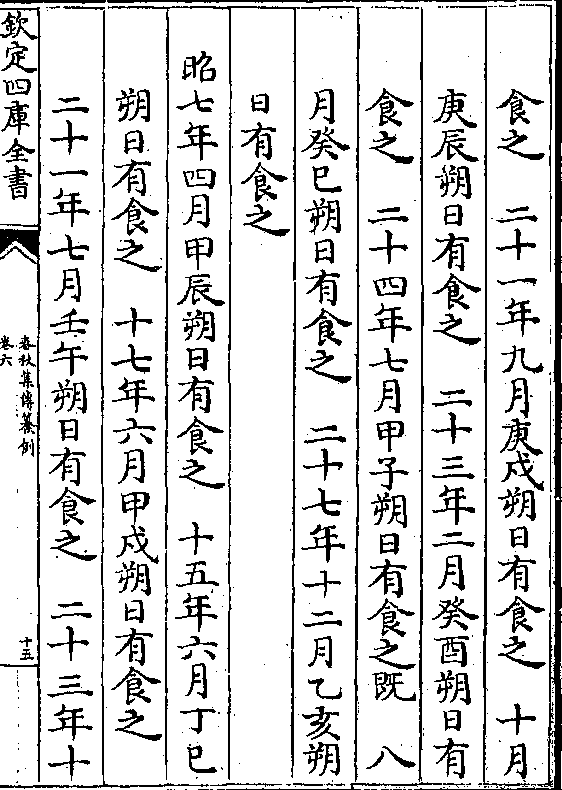 食之　二十一年九月庚戌朔日有食之　十月
庚辰朔日有食之　二十三年二月癸酉朔日有
食之　二十四年七月甲子朔日有食之既　八
月癸巳朔日有食之　二十七年十二月乙亥朔
日有食之
昭七年四月甲辰朔日有食之　十五年六月丁巳
朔日有食之　十七年六月甲戌朔日有食之
二十一年七月壬午朔日有食之　二十三年十
欽定四庫全書
春秋集傳纂例
卷六
十五